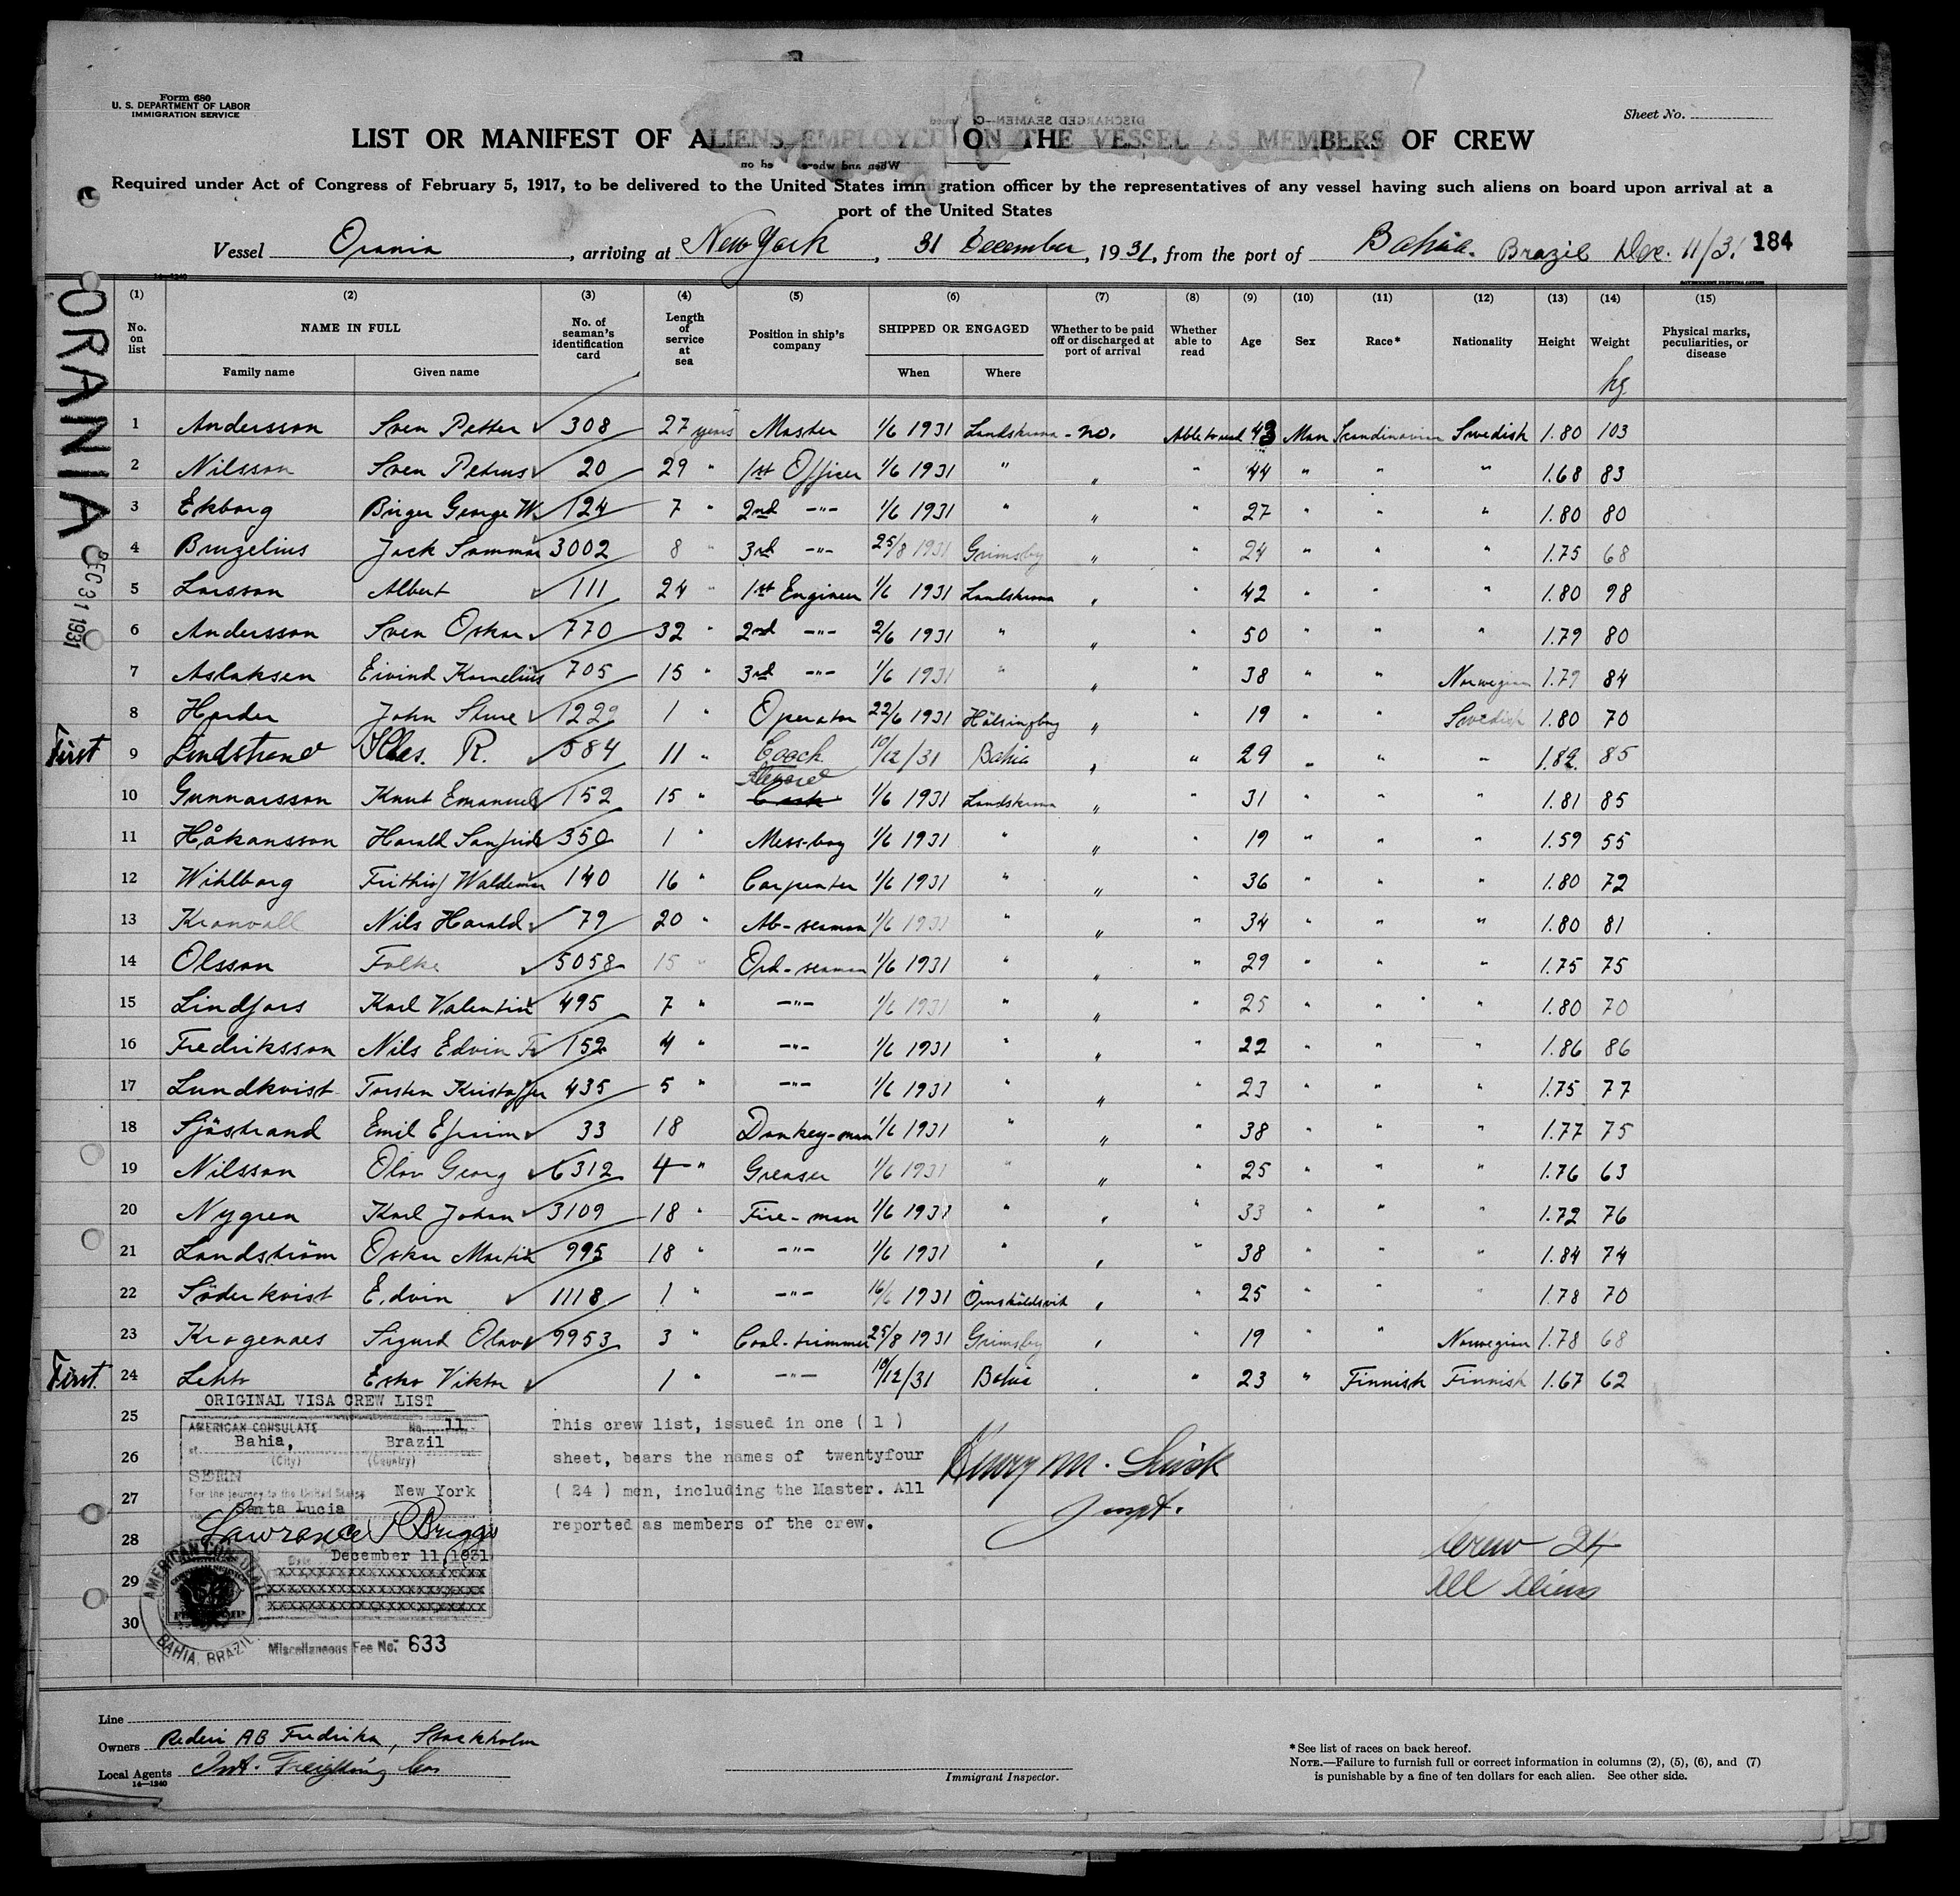 Form 680
U. S. DEPARTMENT OF LABOR
IMMIGRATION SERVICE
Sheet No.
LIST OR MANIFEST OF ALIENS EMPLOYED ON THE VESSEL AS MEMBERS OF CREW
Required under Act of Congress of February 5, 1917, to be delivered to the United States immigration officer by the representatives of any vessel having such aliens on board upon arrival at a
port of the United States
Vessel Orania, arriving at New York, 31 December, 1931, from the port of Bahia. Brazil Dec. 11/31 184
ORANIA
DEC 31 1931
(1) (2) (3) (4) (5) (6) (7) (8) (9) (10) (11) (12) (13) (14) (15)
No. on list NAME IN FULL No. of seaman's identification card Length of service at sea Position in ship's company SHIPPED OR ENGAGED Whether to be paid off or discharged at port of arrival Whether able to read Age Sex Race* Nationality Height Weight Physical marks, peculiarities, or disease
Family name Given name When Where kg.
1 Andersson Sven Petter 308 27 years Master 1/6 1931 Landskrona no. Able to read 43 Man Scandinavian Swedish 1.80 103
2 Nilsson Sven Petrus 20 29 " 1st Officer 1/6 1931 " " " 44 " " " 1.68 83
3 Ekborg Birger George W. 124 7 " 2nd -"- 1/6 1931 " " " 27 " " " 1.80 80
4 Bruzelius Jack 3002 8 " 3rd -"- 25/8 1931 Grimsby " " 24 " " " 1.75 68
5 Larsson Albert 111 24 " 1st Engineer 1/6 1931 Landskrona " " 42 " " " 1.80 98
6 Andersson Sven Oskar 770 32 " 2nd -"- 2/6 1931 " " " 50 " " " 1.79 80
7 Aslaksen Eivind Kornelius 705 15 " 3rd -"- 1/6 1931 " " " 38 " " Norwegian 1.79 84
8 Harder John Sture 1229 1 " Operator 22/6 1931 Hälsingborg " " 19 " " Swedish 1.80 70
First 9 Lindstrand R. 584 11 " Coock 10/12/31 Bahia " " 29 " " " 1.82 85
10 Gunnarsson Knut Emanuel 152 15 " Steward 1/6 1931 Landskrona " " 31 " " " 1.81 85
11 Håkansson Harald Sanfrid 350 1 " Mess-boy 1/6 1931 " " " 19 " " " 1.59 55
12 Wihlborg Frithiof Waldemar 140 16 " Carpenter 1/6 1931 " " " 36 " " " 1.80 72
13 Kranvall Nils Harald 79 20 " Ab-seaman 1/6 1931 " " " 34 " " " 1.80 81
14 Olsson Folke 5058 15 " Ord-seaman 1/6 1931 " " " 29 " " " 1.75 75
15 Lindfors Karl Valentin 495 7 " -"- 1/6 1931 " " " 25 " " " 1.80 70
16 Fredriksson Nils Edvin Fr 152 4 " -"- 1/6 1931 " " " 22 " " " 1.86 86
17 Lundkvist Torsten Kristoffer 435 5 " -"- 1/6 1931 " " " 23 " " " 1.75 77
18 Sjöstrand Emil Efraim 33 18 Donkey-man 1/6 1931 " " " 38 " " " 1.77 75
19 Nilsson Olov Georg 6312 4 " Greaser 1/6 1931 " " " 25 " " " 1.76 63
20 Nygren Karl Johan 3109 18 " Fire-man 1/6 1931 " " " 33 " " " 1.72 76
21 Landström Oskar Martin 995 18 " -"- 1/6 1931 " " " 38 " " " 1.84 74
22 Söderkvist Edvin 1118 1 " -"- 16/6 1931 Örnsköldsvik " " 25 " " " 1.78 70
23 Krogenaes Sigurd Olav 9953 3 " Coal-trimmer 25/8 1931 Grimsby " " 19 " " Norwegian 1.78 68
First. 24 Lehto Esko Viktor 1 " -"- 10/12/31 Bahia " 23 " Finnish Finnish 1.67 62
25
26
27
28
29
30
ORIGINAL VISA CREW LIST
AMERICAN CONSULATE No. 11
at Bahia, Brazil
(City) (Country)
SEEN
For the journey to the United States New York
via Santa Lucia
Lawrence P Briggs
Date December 11, 1931
XXXXXXXXXXXXXXXXXXXXX
XXXXXXXXXXXXXXXXXXXXX
XXXXXXXXXXXXXXXXXXXXX
AMERICAN CONSULATE
BAHIA, BRAZIL
Miscellaneous Fee No. 633
This crew list, issued in one ( 1 )
sheet, bears the names of twentyfour
( 24 ) men, including the Master. All
reported as members of the crew.
Henry M.
Inspt.
Crew 24
All Aliens
Line
Owners Rederi AB Fredrika, Stockholm
Local Agents Int. Freighting Co
14—1240
Immigrant Inspector.
*See list of races on back hereof.
NOTE.—Failure to furnish full or correct information in columns (2), (5), (6), and (7)
is punishable by a fine of ten dollars for each alien. See other side.